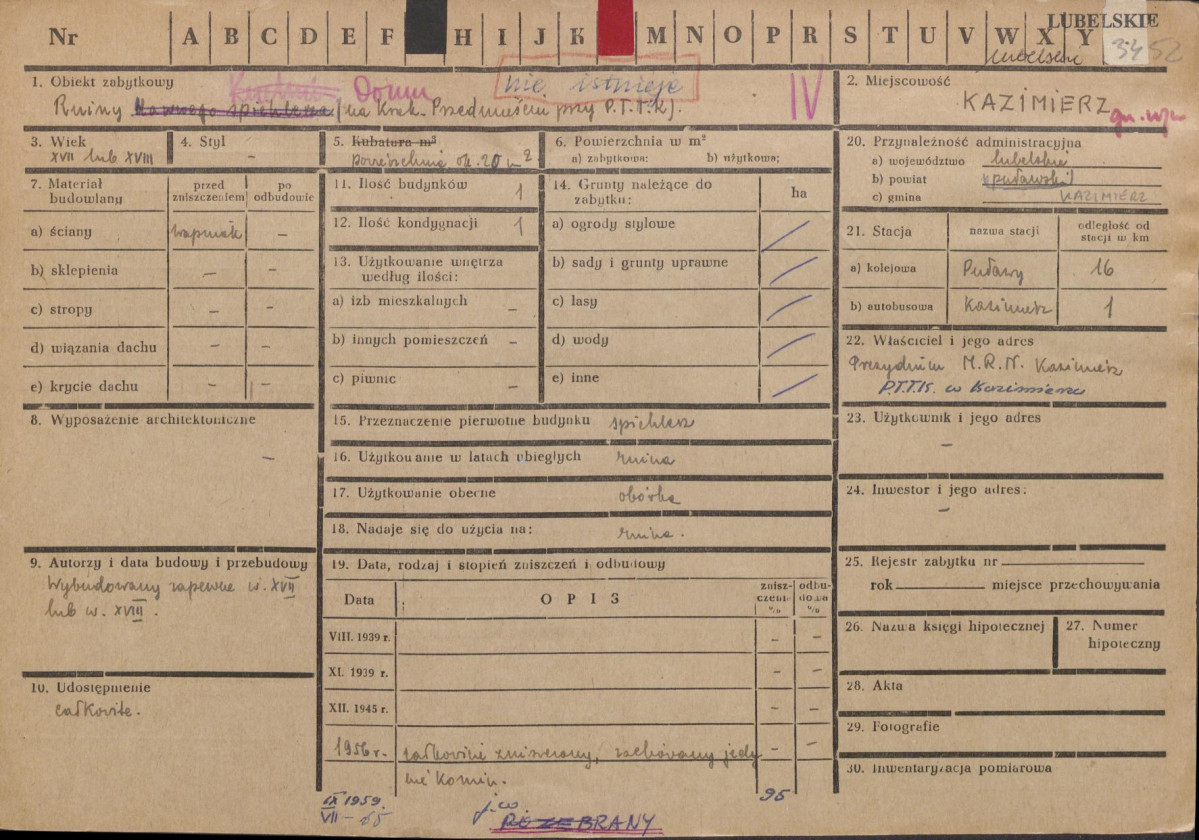 LUBELSKIE
Nr A B C D E F H I J K M N O P R S T U V W X Y
lubelskie 34 52
1. Obiekt zabytkowy Domu nie istnieje IV
Ruiny dawnego spichlerza (na Krak. Przedmieściu przy P.T.T.K).
2. Miejscowość
KAZIMIERZ
3. Wiek
XVII lub XVIII
4. Styl
–
5. Kubatura m³
powierzchnia ok. 20 m²
6. Powierzchnia w m²
a) zabytkowa: b) użytkowa:
20. Przynależność administracyjna
a) województwo lubelskie
b) powiat puławski
c) gmina KAZIMIERZ
7. Materiał budowlany
przed zniszczeniem
po odbudowie
a) ściany wapniak –
b) sklepienia – –
c) stropy – –
d) wiązania dachu – –
e) krycie dachu – –
11. Ilość budynków 1
12. Ilość kondygnacji 1
13. Użytkowanie wnętrza
według ilości:
a) izb mieszkalnych –
b) innych pomieszczeń –
c) piwnic –
14. Grunty należące do
zabytku: ha
a) ogrody stylowe
b) sady i grunty uprawne
c) lasy
d) wody
e) inne
21. Stacja nazwa stacji odległość od stacji w km
a) kolejowa Puławy 16
b) autobusowa Kazimierz 1
22. Właściciel i jego adres
Prezydium M.R.N. Kazimierz
P.T.T.K. w Kazimierzu
8. Wyposażenie architektoniczne
–
15. Przeznaczenie pierwotne budynku spichlerz
16. Użytkowanie w latach ubiegłych ruina
17. Użytkowanie obecne obórka
18. Nadaje się do użycia na: ruina.
23. Użytkownik i jego adres
–
24. Inwestor i jego adres:
–
9. Autorzy i data budowy i przebudowy
Wybudowany zapewne w. XVII
lub w. XVIII.
10. Udostępnienie
całkowite.
19. Data, rodzaj i stopień zniszczeń i odbudowy
Data OPIS zniszczenie % odbudowa %
VIII. 1939 r. – –
XI. 1939 r. – –
XII. 1945 r. – –
1956 r. całkowicie zniszczony, zachowany jedy – –
nie komin.
IX 1959. j.w. 95
VII – 65 ROZEBRANY
25. Rejestr zabytku nr
rok miejsce przechowywania
26. Nazwa księgi hipotecznej
27. Numer
hipoteczny
28. Akta
29. Fotografie
30. Inwentaryzacja pomiarowa